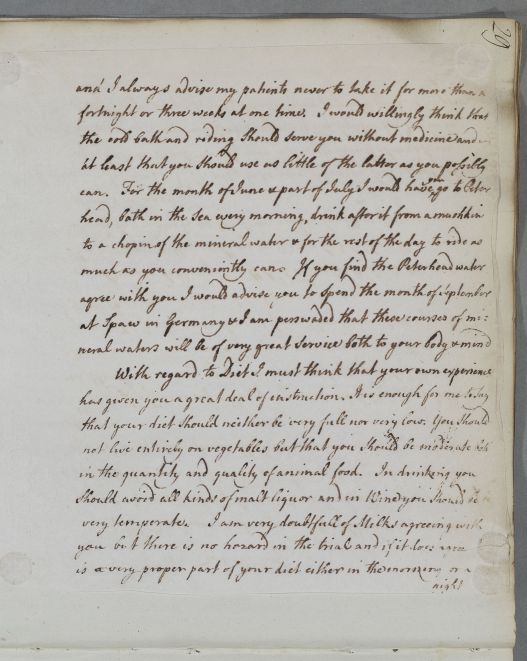 29
and I always advise my patients never to take it for more than a
fortnight or three weeks at one time. I would willingly think that
the cold bath and riding should serve you without medicine and
at least that you should use as little of the latter as you possibly
can. For the month of June & part of July I would have you go to Peter
head, bath in the Sea every morning, drink after it from a mutchkin
to a chopin of the mineral water & for the rest of the day to ride as
much as you conveniently can. If you find the Peterhead water
agree with you I would advise you to spend the month of September
at Spaw in Germany & I am perswaded that these courses of mi=
neral waters will be of very great Service both to your body & mind
With regard to Diet I must think that your own experience
has given you a great deal of instruction. It is enough for me to say
that your diet should neither be very full nor very low. You should
not live entirely on vegetables but that you should be moderate both
in the quantity and quality of animal food. In drinking you
should avoid all kinds of malt liquor and in Wine you should be
very temperate. I am very doubtfull of Milks agreeing with
you but there is no hazard in the trial and if it does agree
is a very proper part of your diet either in the morning or a
night